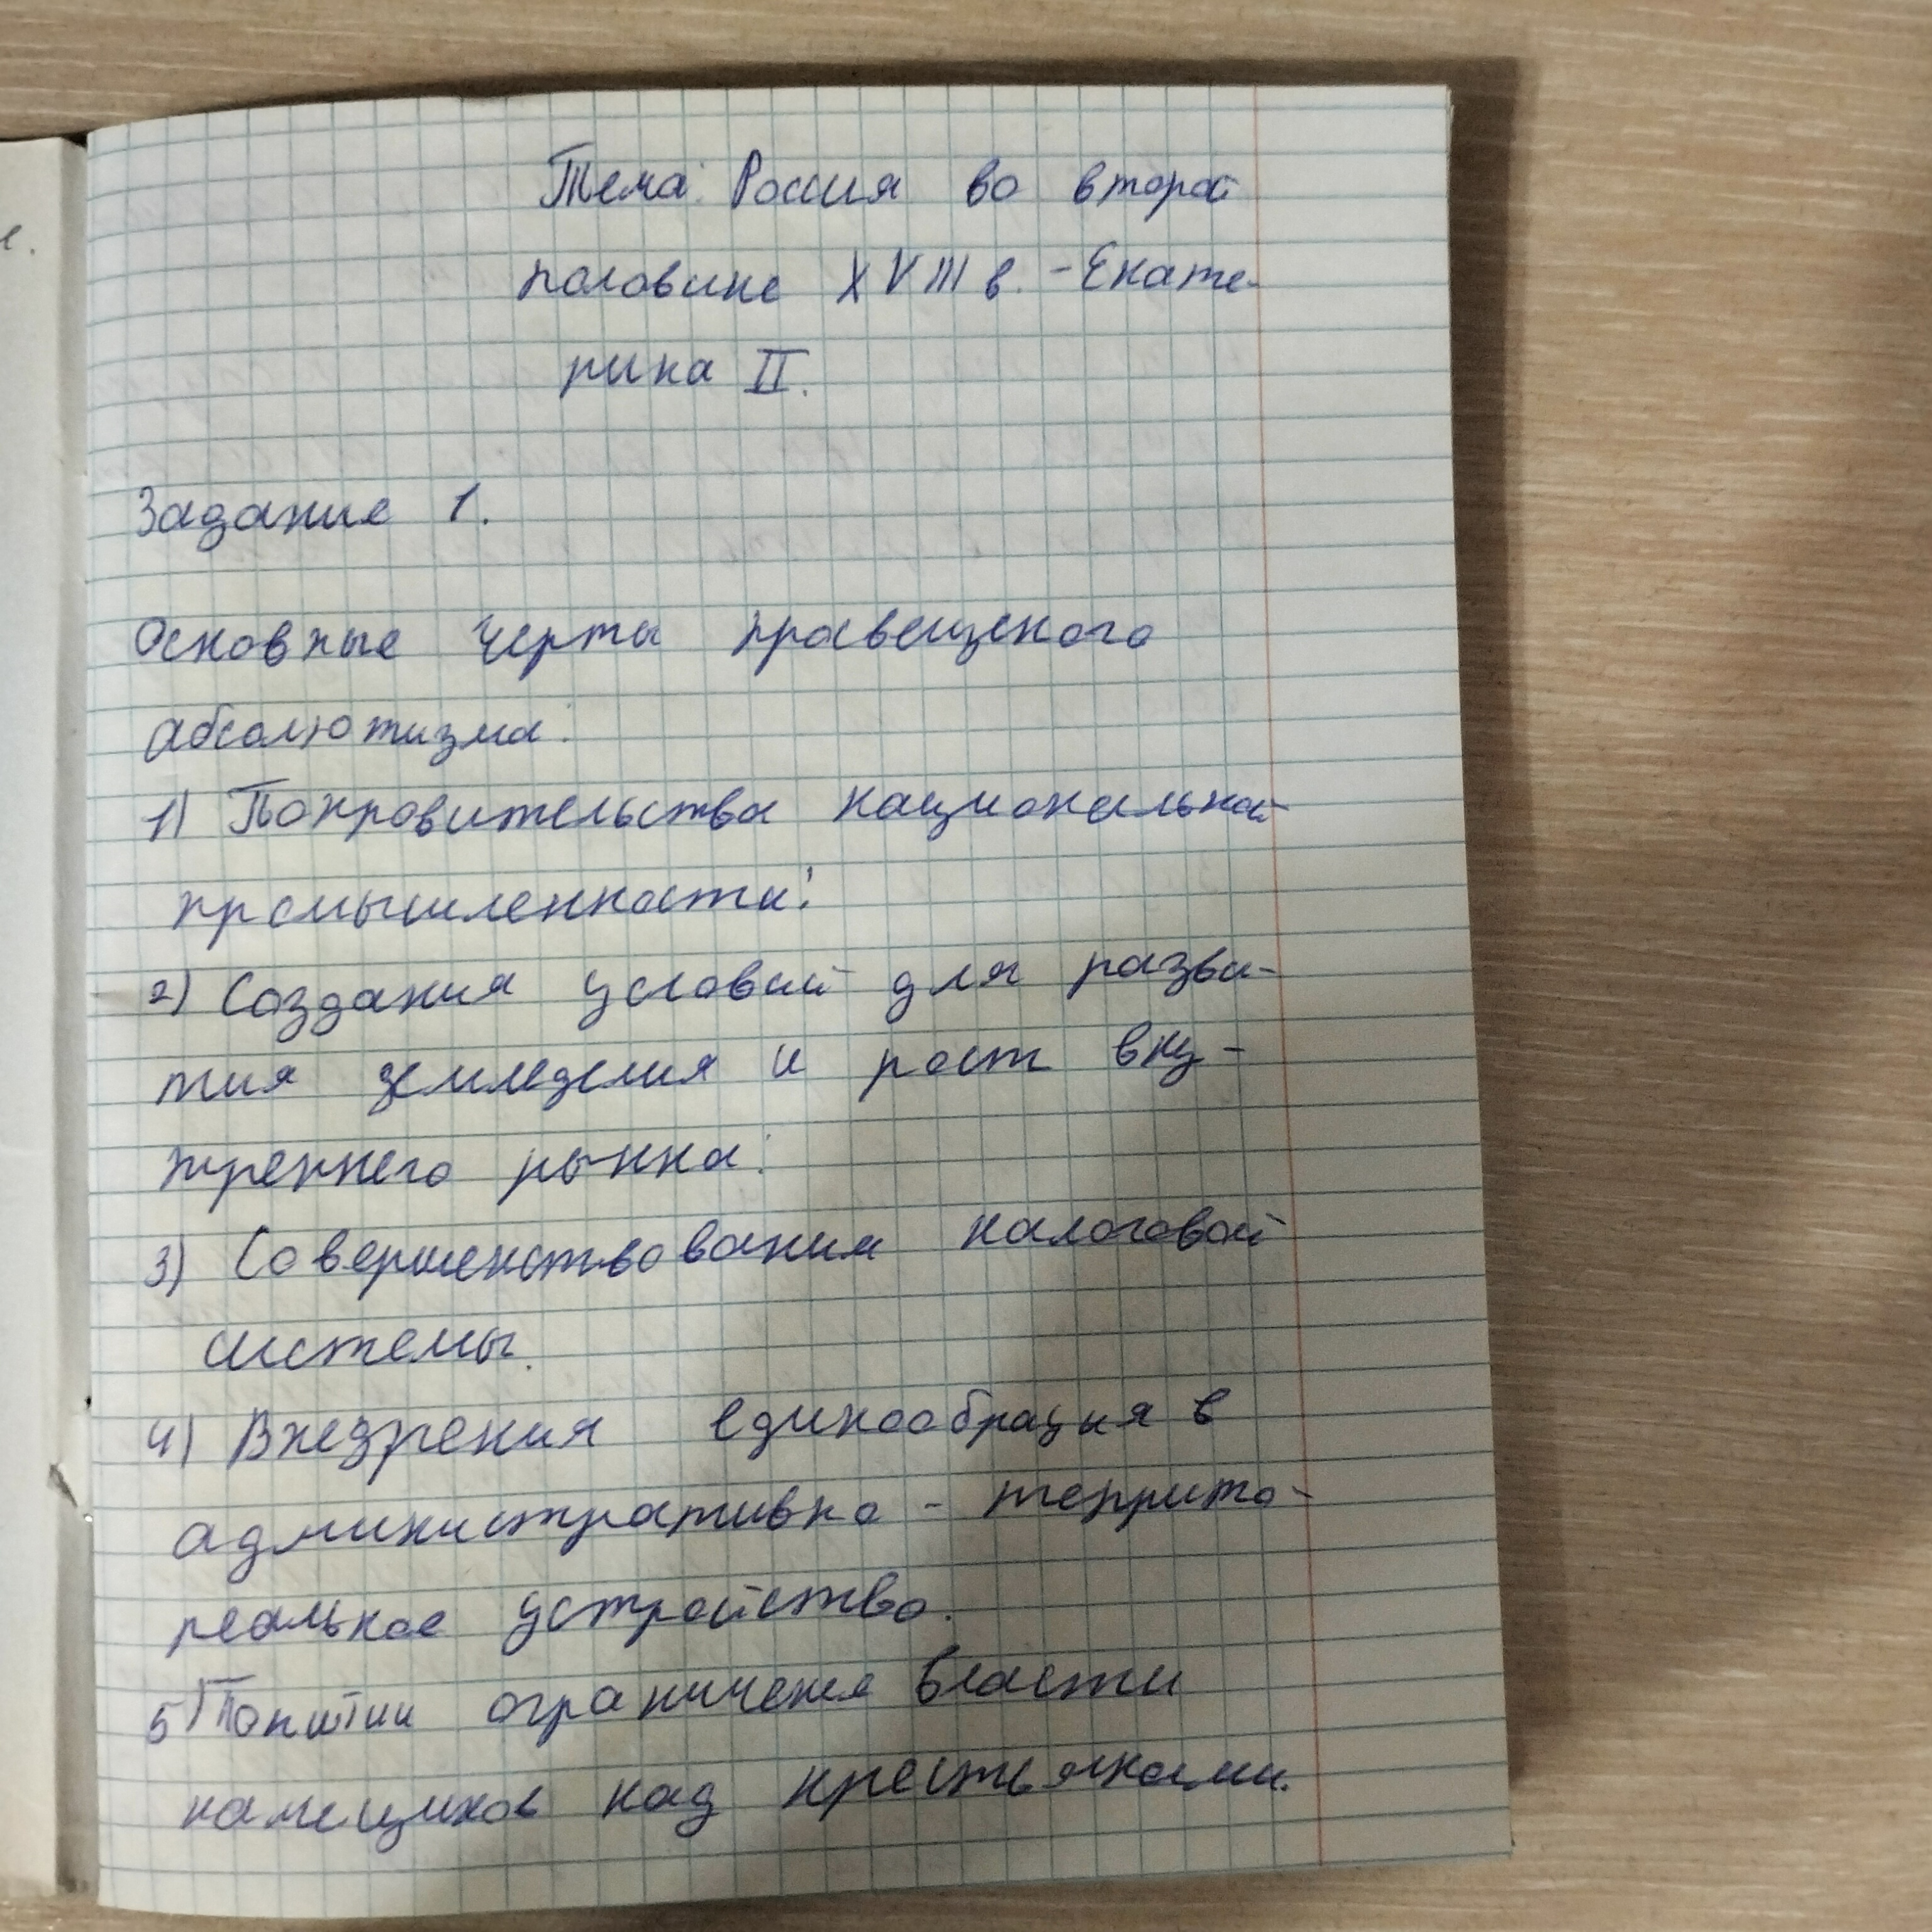 Тема: Россия во второй
половине XVIII в. - Екате-
рина II.
Задание 1.
Основные черты просвещеного
абсолютизма:
1) Покровительства национальной
промышленности:
2) Создания условий для разви-
тия земледелия и рост вну-
треннего рынка:
3) Совершенствованим налоговой
системы.
4) Внедрения единообразия в
административно - террито-
реальное устройство.
5) ограничения власти
помещиков над крестьянами.